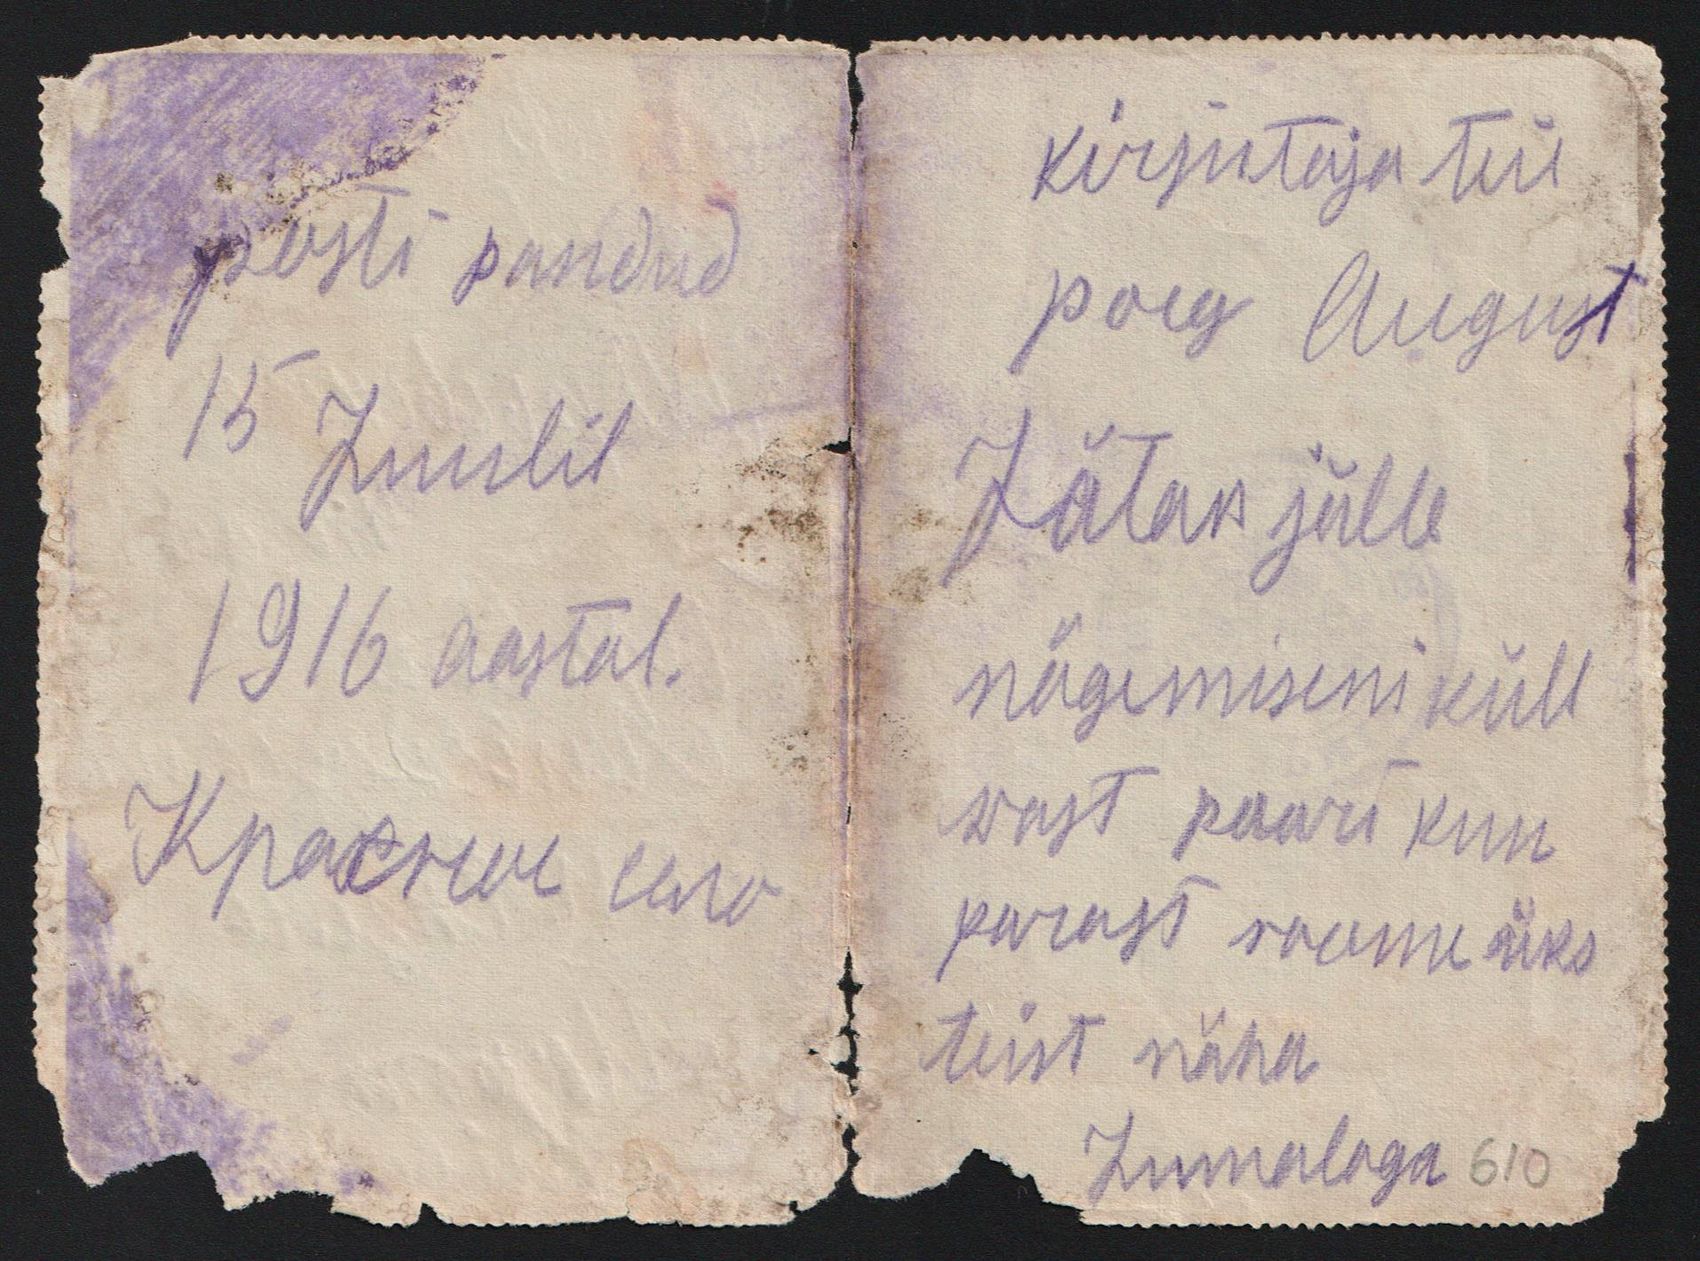 posti pandud
15 Juulil
1916 aastal.
Красное село
kirjutaja teie
poeg August
Jätan jälle
nägemiseni küll
wast paari kuu
parast roome üks
teist näha
Jumalaga 610